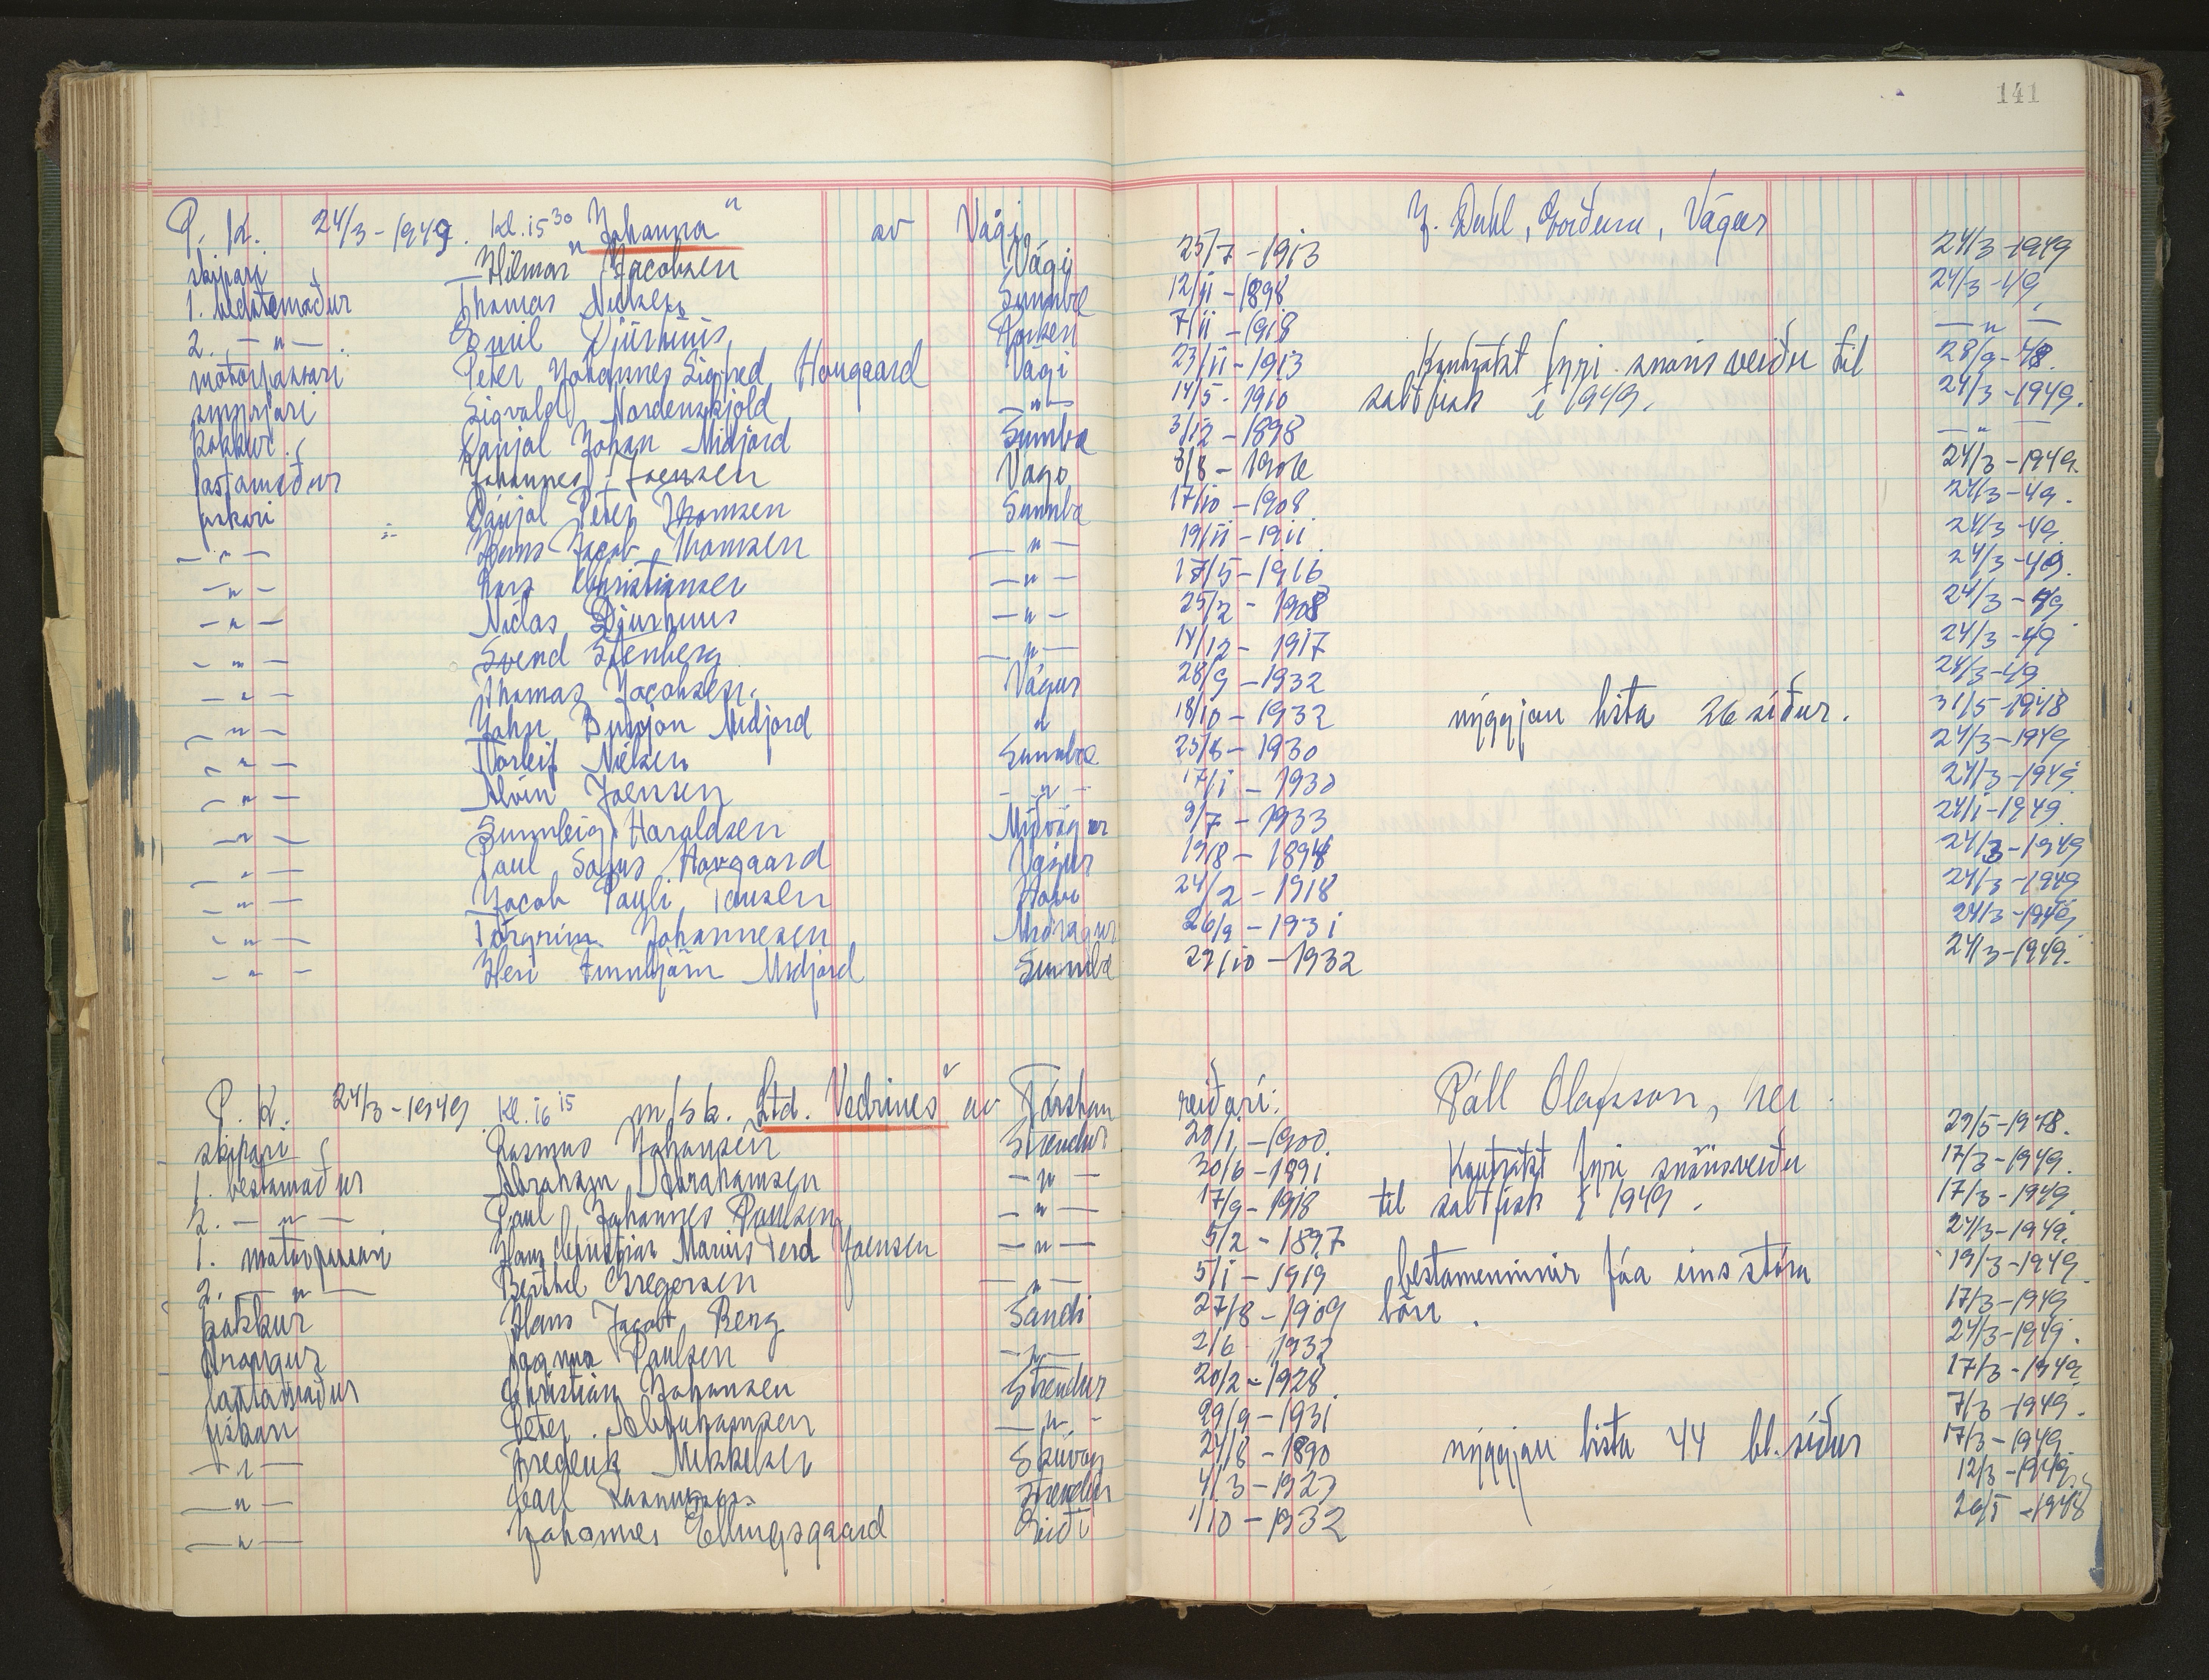 141
P. K. 24/3-1949. kl. 15 30 "Johanna" av Vági J. Dahl, Vágur
skipari Hilmar Jacobsen Vági 25/7-1913 24/3-1949
1. bestemaður Thomas Nielsen Sumba 12/11-1898 24/3-49
2. -"- Emil Djurhuus 7/11-1918 -"-
motorpassari Peter Johannes Sigfred Hougaard Vági 23/11-1913 Kontrakt fyri snørisveiðu til 28/9-48.
Sigvald Nordenskjold -"- 14/5-1910 saltfisk í 1949. 24/3-1949.
kokkur Danjal Johan Midjord Sumba 3/12-1898 -"-
lastamaður Johannes Joensen Vágo 8/8-1906 24/3-1949.
fiskari Dánjal Peter Thomsen Sumba 17/10-1908 24/3-49.
-"- Hans Jacob Thomsen -"- 19/11-1911 24/3-49.
-"- Lars Christiansen -"- 17/5-1916 24/3-49.
-"- Niclas Djurhuus -"- 25/2-1908 24/3-49
-"- Svend Stenberg -"- 14/12-1917 24/3-49
-"- Thomas Jacobsen. Vágur 28/9-1932 24/3-49
-"- John Midjord " 18/10-1932 nýggjan lista 26 síður. 31/5-1948
-"- Torleif Nielsen Sumba 25/8-1930 24/3-1949
-"- Alvin Joensen -"- 17/1-1930 24/3-1949
-"- Sunnleig Haraldsen Miðvágur 9/7-1933 24/1-1949.
-"- Paul Hovgaard Vágur 19/8-1894 24/3-1949
-"- Jacob Pauli Tausen Hove 24/2-1918 24/3-1949
-"- Torgrim Johannesen Miðvágur 26/9-1931 24/3-1949
-"- Heri Finnbjørn Midjord Sumba 29/10-1932 24/3-1949.
P. K. 24/3-1949 kl. 16 15 m/sk. "Ltd. Vedrines" av Tórshavn reiðari: Páll Olafsson, her
skipari Rasmus Johansen Strendur 20/1-1900 29/5-1948.
1. bestamaður Abraham Abrahamsen -"- 30/6-1891 Kontrakt fyri snørisveiðu 17/3-1949.
2. -"- Paul Johannes Poulsen -"- 17/9-1918 til saltfisk í 1949. 17/3-1949
1. motorpassari Hans Christian Marius Ferd Joensen -"- 5/2-1897 24/3-1949.
2. -"- Berthel Gregersen -"- 5/1-1919 bestamenninir fáa eins stóra 19/3-1949
kokkur Hans Jacob Berg Sandi 27/8-1909 løn. 17/3-1949
drongur Magnus Paulsen -"- 2/6 1932 24/3-1949.
lastamaður Christian Johansen Strendur 20/2-1928 17/3-1949
fiskari Peter Abrahamsen -"- 29/9-1931 7/3-1949.
-"- Frederik Mikkelsen Skúvoy 24/8-1890 nýggjan lista 44 bl. síður 17/3-1949.
-"- Carl Rasmussen Strendur 4/3-1927 12/3-1949
-"- Johannes Ellingsgaard Eiði 1/10-1932 26/5-1948